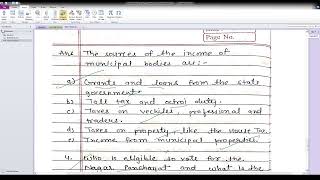 Page No.
Ans The sources of the income of
municipal bodies are:-
a) Grants and loans from the state
government.
b) Toll tax and octroi duty.
c) Taxes on vechiles, professional and
traders.
d) Taxes on property, like the House Tax.
e) Income from municipal properties.
4. Who is eligible to vote for the
Nagar Panchayat and what is the